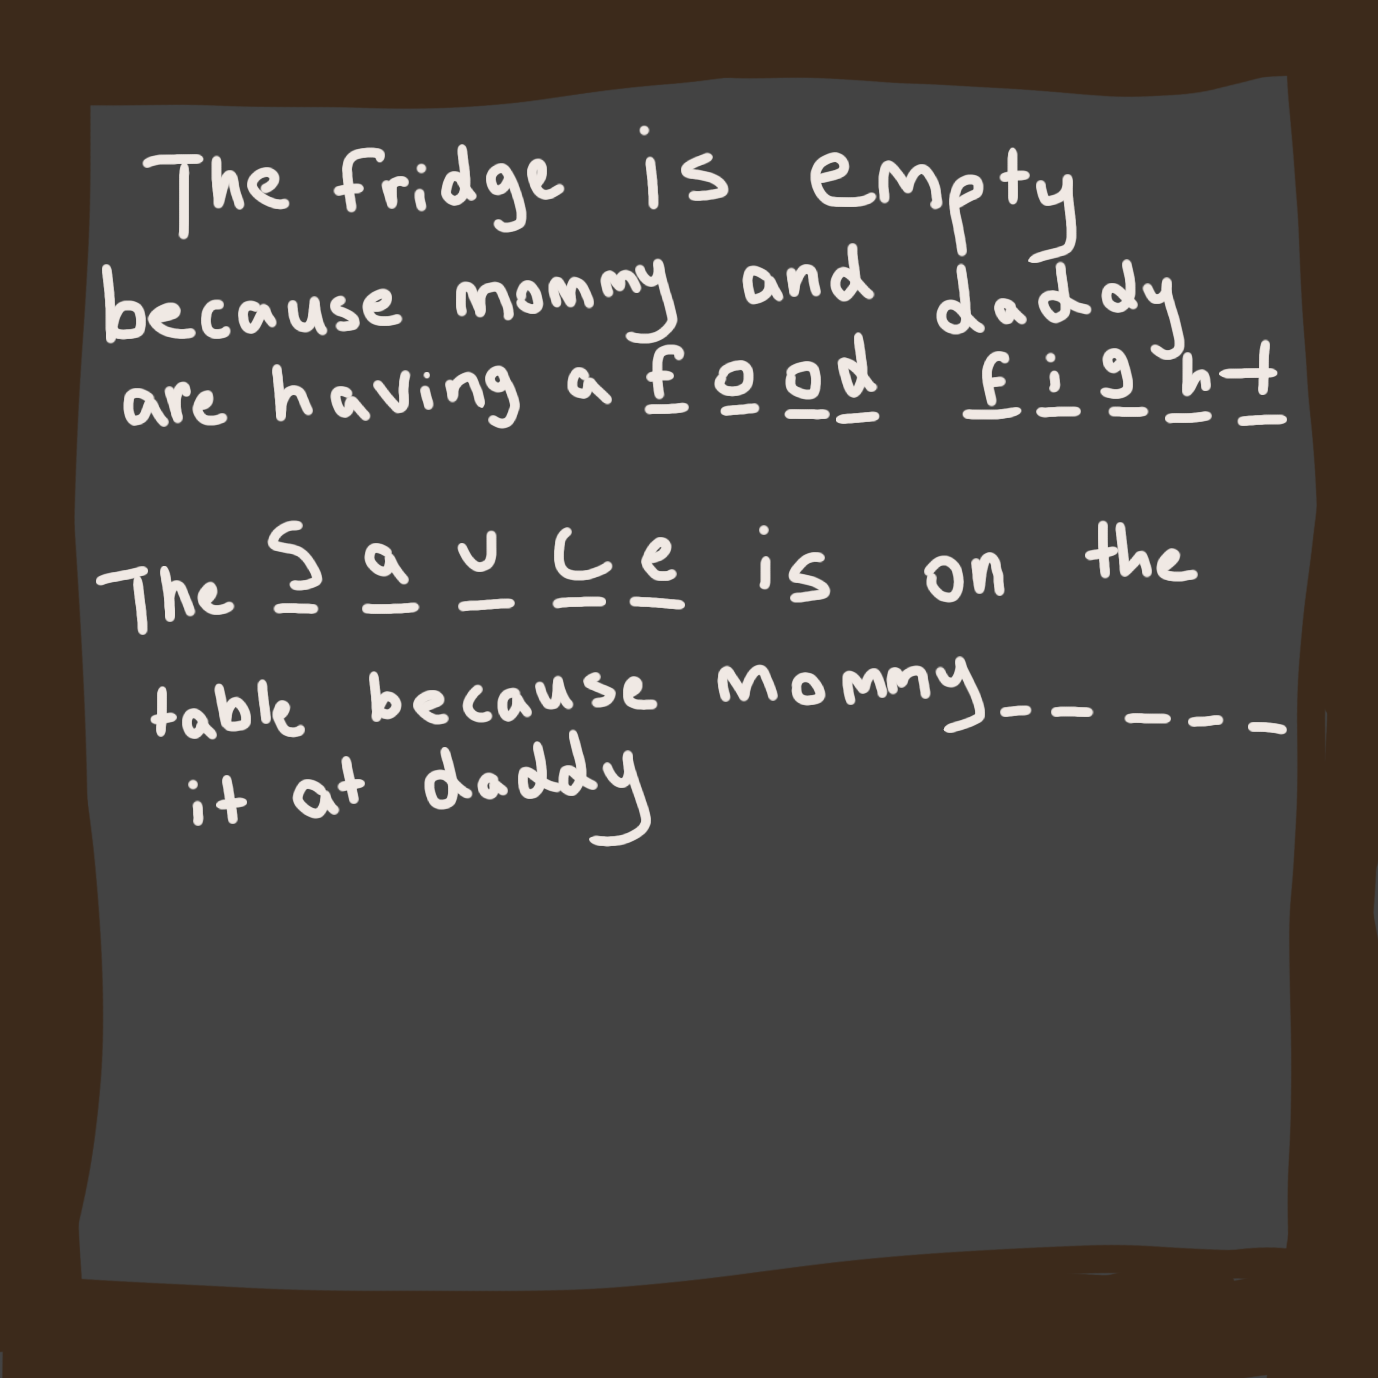 The fridge is empty
because mommy and daddy
are having a food fight
The Sauce is on the
table because mommy _ _ _ _ _
it at daddy